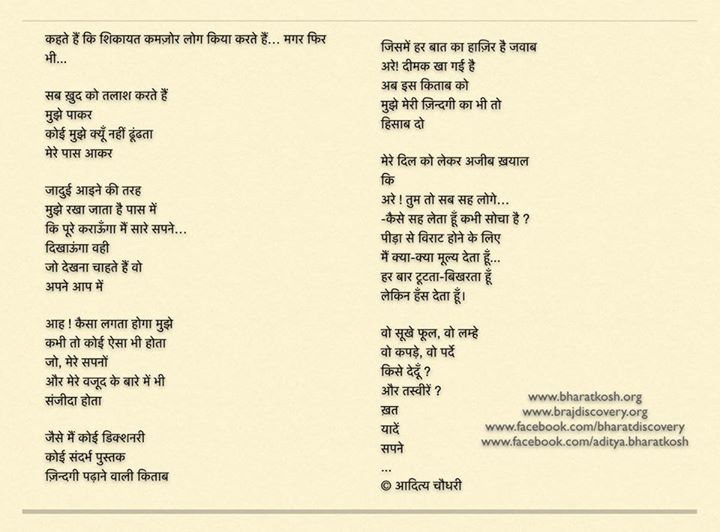 कहते हैं कि शिकायत कमज़ोर लोग किया करते हैं... मगर फिर
भी...
सब ख़ुद को तलाश करते हैं
मुझे पाकर
कोई मुझे क्यूँ नहीं ढूंढता
मेरे पास आकर
जादुई आइने की तरह
मुझे रखा जाता है पास में
कि पूरे कराऊँगा मैं सारे सपने...
दिखाऊंगा वही
जो देखना चाहते हैं वो
अपने आप में
आह ! कैसा लगता होगा मुझे
कभी तो कोई ऐसा भी होता
जो, मेरे सपनों
और मेरे वजूद के बारे में भी
संजीदा होता
जैसे मैं कोई डिक्शनरी
कोई संदर्भ पुस्तक
ज़िन्दगी पढ़ाने वाली किताब
जिसमें हर बात का हाज़िर है जवाब
अरे! दीमक खा गई है
अब इस किताब को
मुझे मेरी ज़िन्दगी का भी तो
हिसाब दो
मेरे दिल को लेकर अजीब ख़याल
कि
अरे ! तुम तो सब सह लोगे...
-कैसे सह लेता हूँ कभी सोचा है ?
पीड़ा से विराट होने के लिए
मैं क्या-क्या मूल्य देता हूँ...
हर बार टूटता-बिखरता हूँ
लेकिन हँस देता हूँ।
वो सूखे फूल, वो लम्हे
वो कपड़े, वो पर्दे
किसे देदूँ ?
और तस्वीरें ?
ख़त
यादें
सपने
...
© आदित्य चौधरी
www.bharatkosh.org
www.brajdiscovery.org
www.facebook.com/bharatdiscovery
www.facebook.com/aditya.bharatkosh